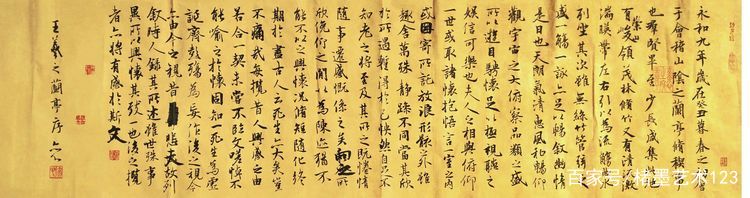 永和九年歲在癸丑暮春之初會
于會稽山陰之蘭亭脩稧事
也群賢畢至少長咸集此地
有崇山峻領茂林脩竹又有清流激
湍映帶左右引以為流觴曲水
列坐其次雖無絲竹管弦之
盛一觴一詠亦足以暢敘幽情
是日也天朗氣清惠風和暢仰
觀宇宙之大俯察品類之盛
所以遊目騁懷足以極視聽之
娛信可樂也夫人之相與俯仰
一世或取諸懷抱悟言一室之內
或因寄所託放浪形骸之外雖
趣舍萬殊靜躁不同當其欣
於所遇暫得於己快然自足不
知老之將至及其所之既惓情
隨事遷感慨係之矣向之所
欣俛仰之間以為陳迹猶不
能不以之興懷況脩短隨化終
期於盡古人云死生亦大矣豈
不痛哉每攬昔人興感之由
若合一契未嘗不臨文嗟悼不
能喻之於懷固知一死生為虛
誕齊彭殤為妄作後之視今
亦由今之視昔悲夫故列
敘時人錄其所述雖世殊事
異所以興懷其致一也後之攬
者亦將有感於斯文
王羲之蘭亭序
百家号/楮墨艺术123